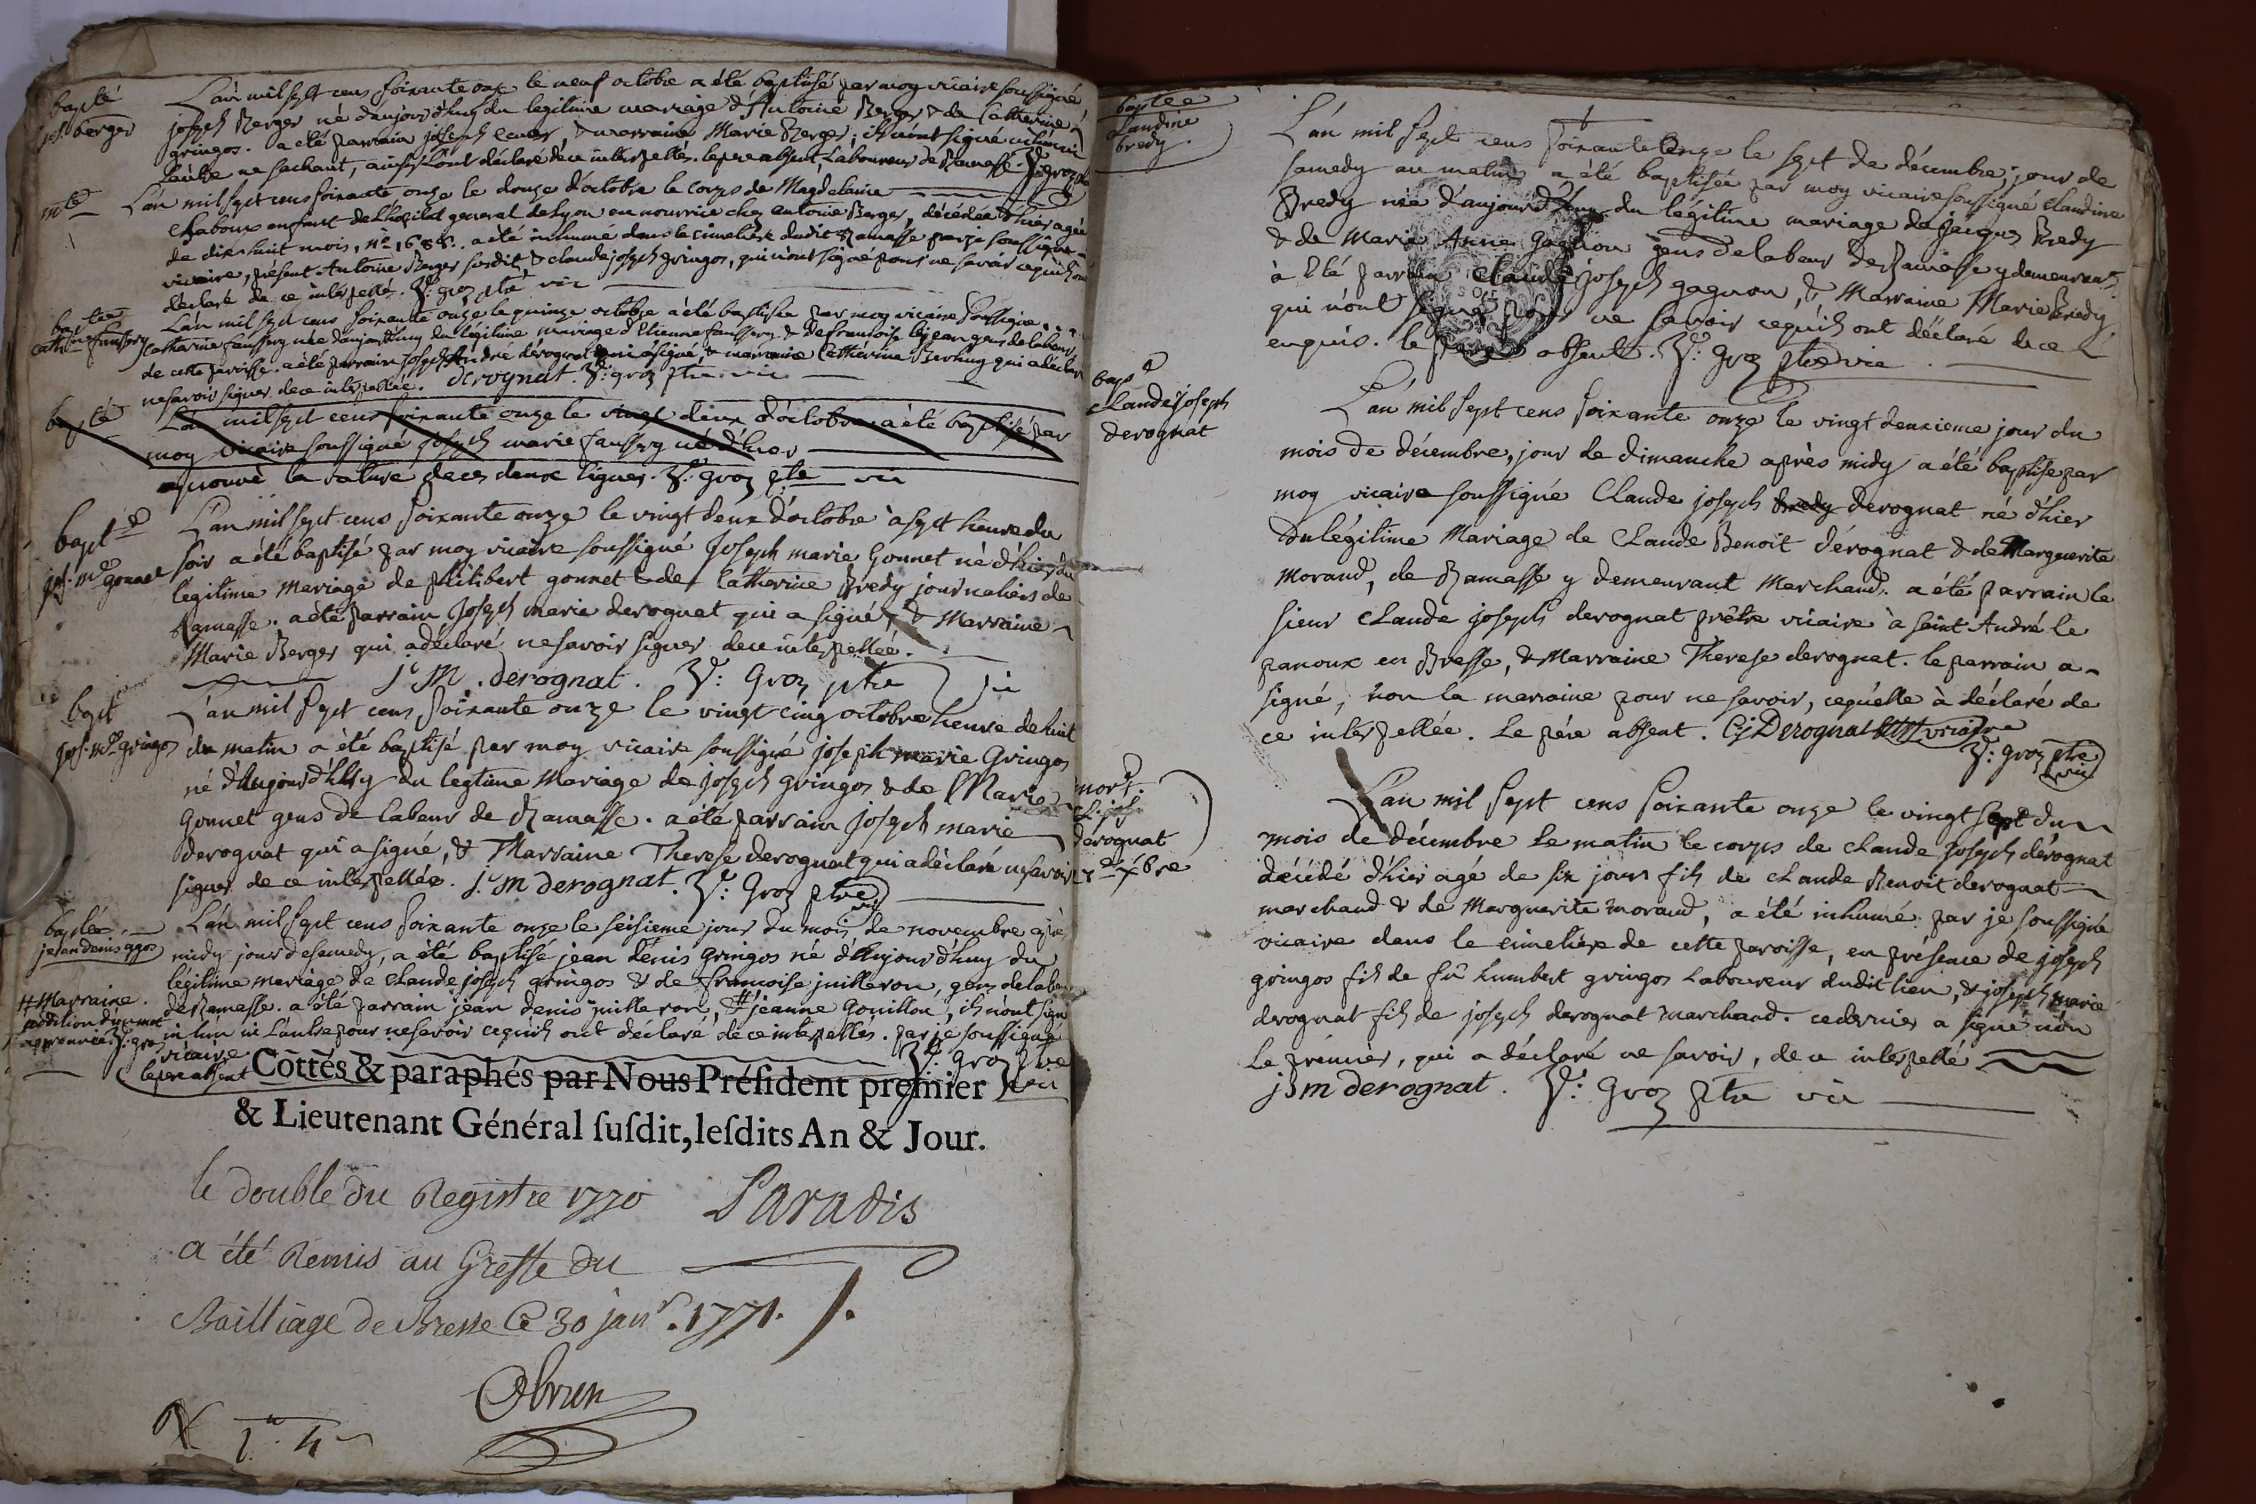 bapté
jph berger
L'an mil sept cens soixante onze le neuf octobre a été baptisé par moy vicaire soussigné
joseph Berger né d'aujourd'huy du legitime mariage d'Antoine Berger & de Catherine
gringoz. a été parrain joseph & marraine Marie Berger; ils n'ont signé
l'autre ne sachant, ainsy l'ont déclaré de ce interpellés. le pere absent, Laboureur de Ramasse.
L'an mil sept cens soixante onze le douze d'octobre le corps de Magdelaine
Chaboux enfant de L'hopital general de Lyon en nourrice chez antoine Berger, décédée d'hier agée
de dix huit mois, a été inhumé dans le cimetière dudit Ramasse par je soussigné
vicaire, présent Antoine Berger susdit, & claude joseph gringoz, qui n'ont signé pour ne savoir ce qu'ils ont
déclaré de ce interpellé. groz ptre vic
baptee
cath.ne faussury
L'an mil sept cens soixante onze le quinze octobre a été baptisée par moy vicaire soussigné
catherine née d'aujourd'huy du legitime mariage d'Etienne & de francoise gens de labeur
de cette paroisse. a été parrain joseph André dérognat qui a signé, & marraine Catherine qui a déclaré
ne savoir signer de ce interpellée. derognat. groz ptre vic
bapté
L'an mil sept cens soixante onze le vingt deux d'octobre a été baptisé par
moy vicaire soussigné joseph marie né d'hier
aprouvé la rature de ces deux lignes. groz ptre vic
bapt
jph. m.ie gonnet
L'an mil sept cens soixante onze le vingt deux d'octobre à sept heure du
soir a été baptisé par moy vicaire soussigné Joseph marie Gonnet né d'hier du
legitime mariage de philibert gonnet & de Catherine Bredy journaliers de
Ramasse. a été parrain Joseph marie derognat qui a signé, & Marraine
Marie Berger qui a déclaré ne savoir signer de ce interpellée.
J M. derognat. Groz ptre vic
bapt
jph. m.ie gringoz
L'an mil sept cens soixante onze le vingt cinq octobre heure de huit
du matin a été baptisé par moy vicaire soussigné joseph marie Gringoz
né d'Aujourd'huy du legtime Mariage de joseph gringoz & de Marie
Gonnet gens de labeur de Ramasse. a été parrain Joseph marie
derognat qui a signé, & Marraine Therese derognat qui a déclaré ne savoir
signer de ce interpellée. j. m derognat. Groz ptre vic
baptée
jean denis ggoz
L'an mil sept cens soixante onze le seisieme jour du mois de novembre après
midy jour de samedy, a été baptisé jean denis gringoz né d'Aujourd'huy du
légitime mariage de Claude joseph gringoz & de francoise juilleron, gens de labeur
de Ramasse. a été parrain jean denis juilleron, # jeanne Gouillon, ils n'ont signé
ni l'un ni L'autre pour ne savoir ce qu'ils ont déclaré de ce interpelles. par je soussigné
vicaire
le pere absent
Groz ptre
vic
# Marraine.
addition d'un mot
approuvée
Cottés & paraphés par Nous Préſident premier
& Lieutenant Général ſuſdit, leſdits An & Jour.
le double du Registre 1770 Paradis
a été Remis au Greffe du
Bailliage de Bresse Ce 30 janr. 1771.
baptee
Claudine
bredy
L'an mil sept cens soixante onze le sept de décembre; jour de
samedy au matin a été baptisée par moy vicaire soussigné Claudine
Bredy née d'aujourd'huy du légitime mariage de Jacques Bredy
& de Marie Anne Gagnon gens de labeur de Ramasse y demeurant.
à été parrain Claude joseph gagnon, & Marraine Marie Bredy
qui n'ont signé pour ne savoir ce qu'ils ont déclaré de ce
enquis. le pere absent. Groz ptre vic
bapé
Claude joseph
derognat
L'an mil sept cens soixante onze le vingt deuxieme jour du
mois de décembre, jour de dimanche après midy a été baptisé par
moy vicaire soussigné Claude joseph bredy derognat né d'hier
du légitime Mariage de Claude Benoit dérognat & de Marguerite
morand, de Ramasse y demeurant Marchand. a été parrain le
sieur Claude joseph derognat prêtre vicaire à saint André le
panoux en Bresse, & Marraine Therese derognat. le parrain a
signé, non la marraine pour ne savoir, ce qu'elle à déclaré de
ce interpellée. Le pére absent. Cj Derognat vicaire
groz ptre
vic
mort.
Cl. jos.
dérognat
L'an mil sept cens soixante onze le vingt sept du
mois de décembre le matin le corps de claude Joseph dérognat
décédé d'hier agé de six jours fils de claude Benoit derognat
marchand & de Marguerite morand, a été inhumé par je soussigné
vicaire dans le cimetière de cette paroisse, en présence de joseph
gringoz fils de fû humbert gringoz Laboureur dudit lieu, & joseph marie
derognat fils de joseph derognat marchand. ce dernier a signé non
le prémier, qui a déclaré ne savoir, de ce interpellé
j s m derognat. Groz ptre vic